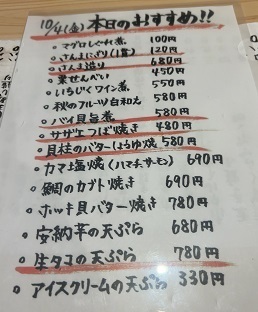 10/4(金) 本日のおすすめ!!
・マグロしぐれ煮 100円
・さんまにぎり(1貫) 120円
・さんま造り 680円
・栗せんべい 450円
・いちじくワイン煮 550円
・秋のフルーツ白和え 580円
・バイ貝旨煮 580円
・サザエつぼ焼き 480円
・貝柱のバターしょうゆ焼 580円
・カマ塩焼(ハマチ、サーモン) 690円
・鯛のカブト焼き 690円
・ホッキ貝バター焼き 780円
・安納芋の天ぷら 680円
・生タコの天ぷら 780円
・アイスクリームの天ぷら 330円